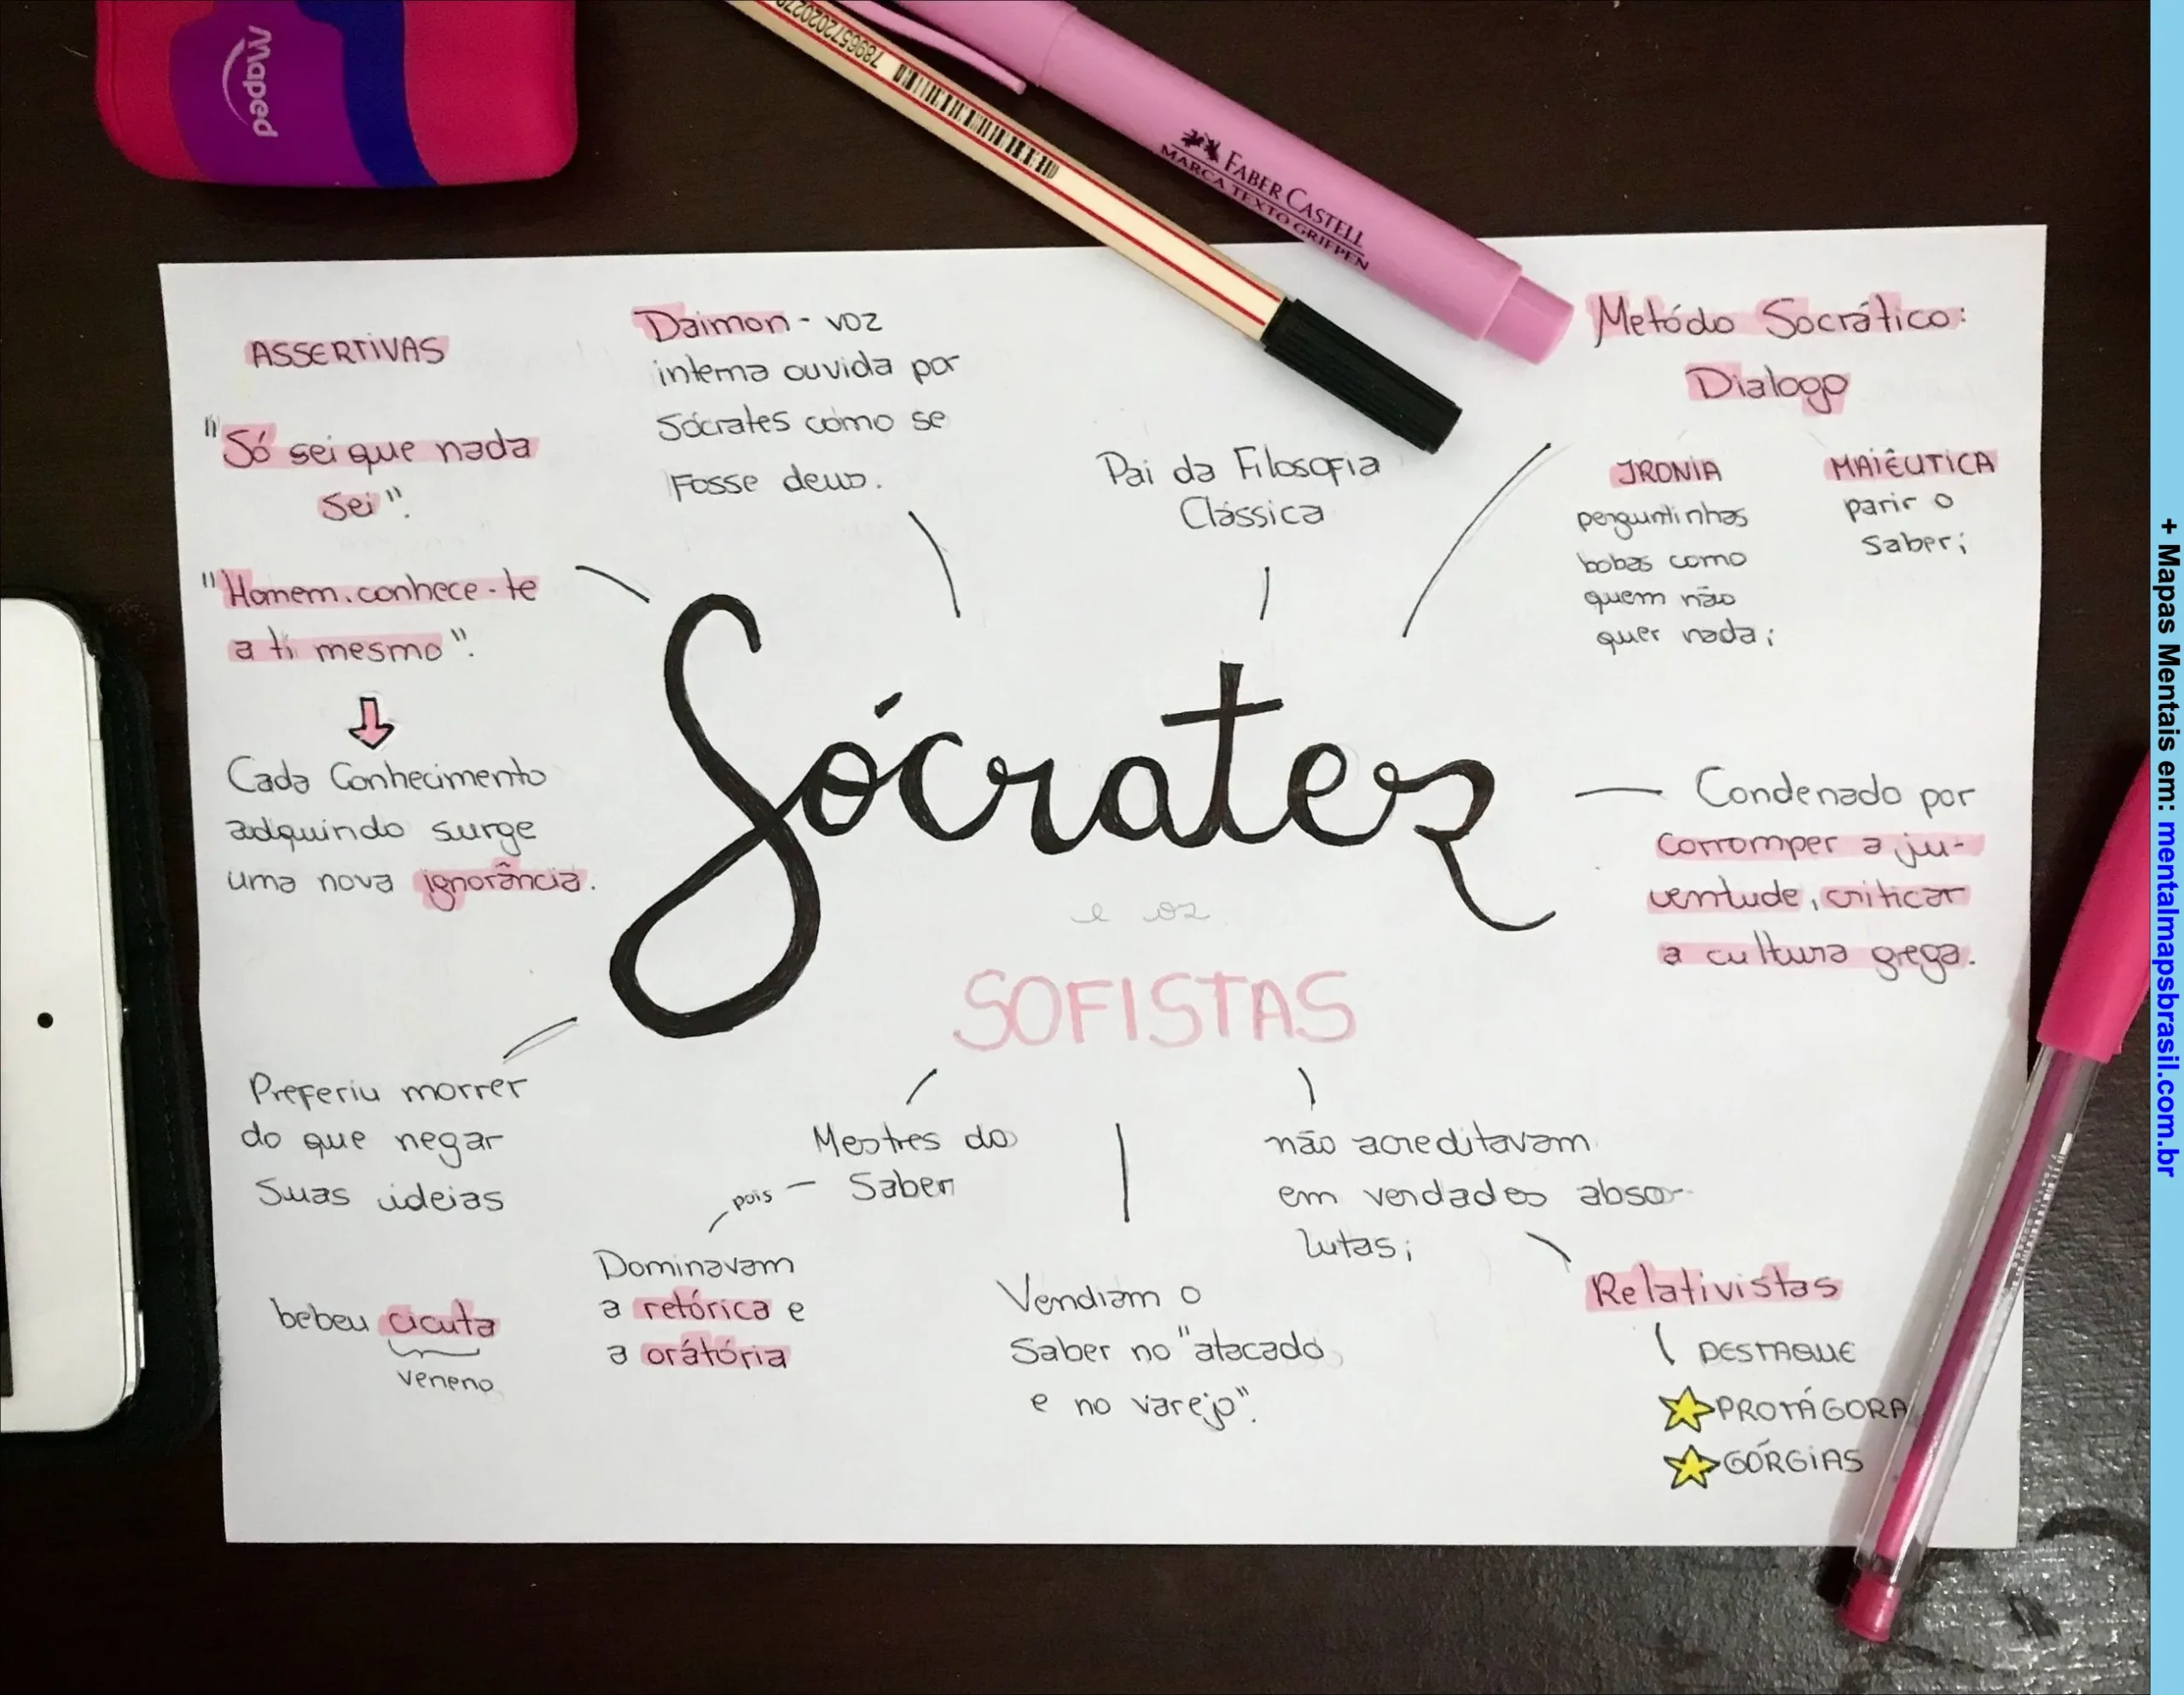 Maped
7896572020270
FABER CASTELL
MARCA TEXTO GRIFPEN
ASSERTIVAS
"Só sei que nada
sei".
"Homem. conhece-te
a ti mesmo".
Cada Conhecimento
adquirido surge
uma nova ignorância.
Daimon - voz
interna ouvida por
Sócrates como se
Fosse deus.
Pai da Filosofia
Clássica
Metódo Socrático:
Dialogo
IRONIA
perguntinhas
bobas como
quem não
quer nada;
MAIÊUTICA
parir o
saber;
Sócrates
e os
SOFISTAS
Condenado por
corromper a ju-
ventude, criticar
a cultura grega.
Preferiu morrer
do que negar
Suas ideias
bebeu cicuta
veneno
Mestres do
Saber
pois
Dominavam
a retórica e
a orátória
Vendiam o
Saber no "atacado
e no varejo".
não acreditavam
em verdades abso-
lutas;
Relativistas
DESTAQUE
PROTÁGORA
GÓRGIAS
+ Mapas Mentais em: mentalmapsbrasil.com.br